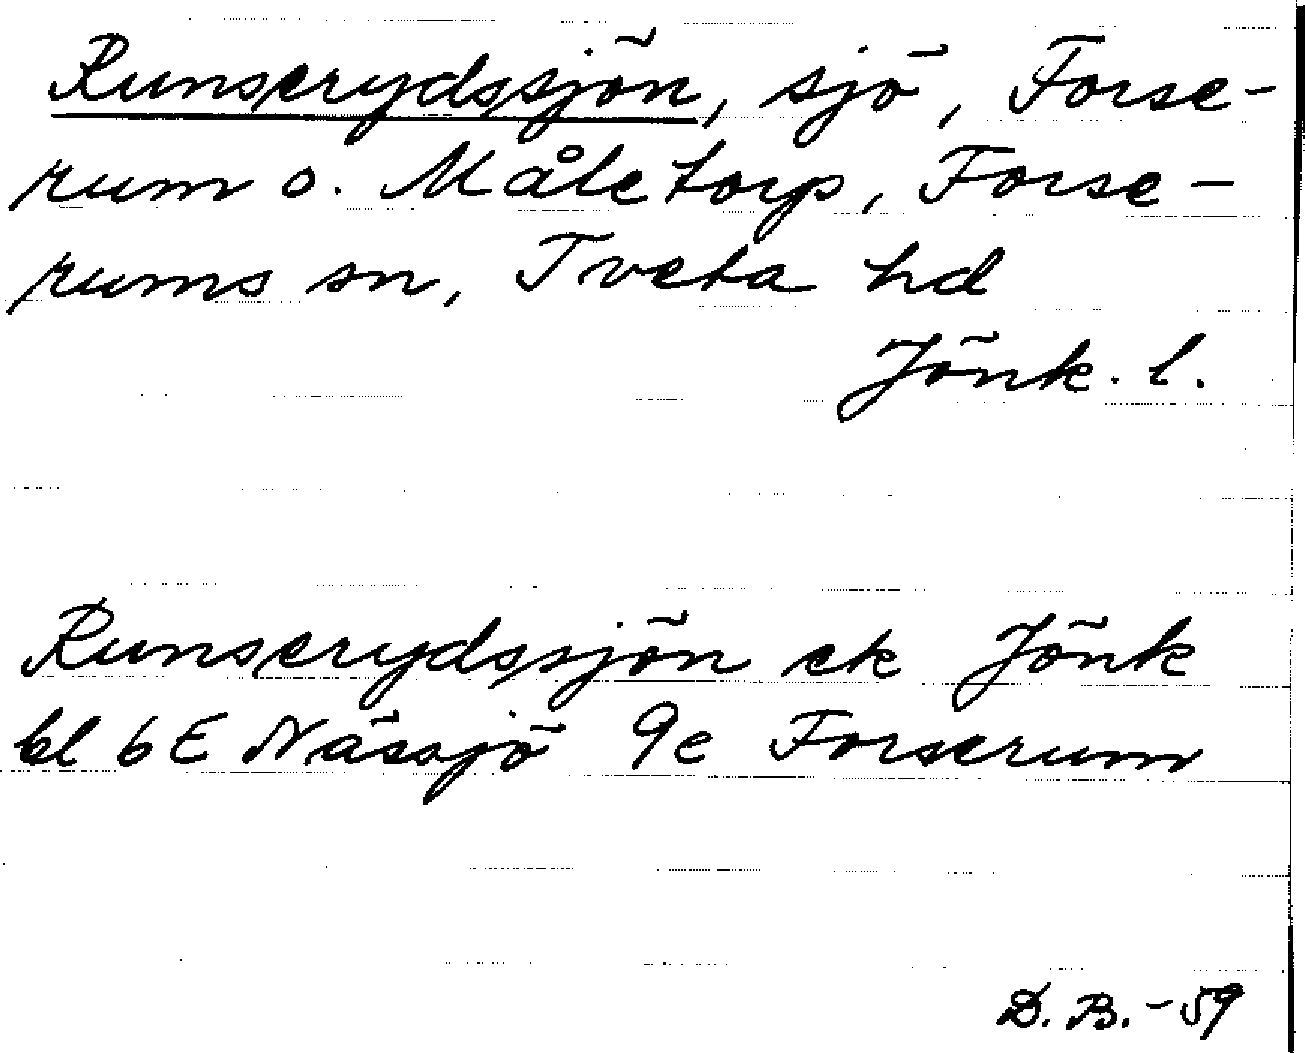 Runserydssjön, sjö, Forse-
rum o. Måletorp, Forse-
rums sn, Tveta hd
Jönk. l.
Runserydssjön ek Jönk
bl 6E Nässjö 9e Forserum
D. B. -59